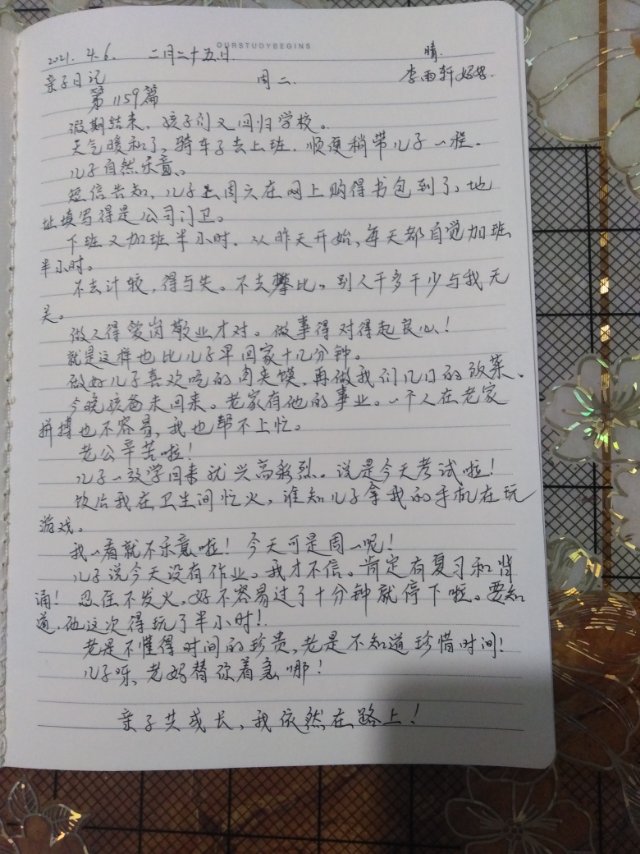 OURSTUDYBEGINS
2021. 4.6. 二月二十五日. 晴.
亲子日记 周二. 李雨轩妈妈.
第1159篇
假期结束,孩子们又回归学校。
天气暖和了,骑车子去上班,顺便稍带儿子一程.
儿子自然乐意。
短信告知,儿子上周六在网上购得书包到了,地
址填写得是公司门卫。
下班又加班半小时,从昨天开始,每天都自觉加班
半小时。
不去计较,得与失。不去攀比。别人干多干少与我无
关。
做人得爱岗敬业才对。做事得对得起良心!
就是这样也比儿子早回家十几分钟。
做好儿子喜欢吃的肉夹馍,再做我们几口的饭菜。
今晚孩爸未回来。老家有他的事业。一个人在老家
拼搏也不容易,我也帮不上忙。
老公辛苦啦!
儿子一放学回来就兴高彩烈。说是今天考试啦!
饭后我在卫生间忙火,谁知儿子拿我的手机在玩
游戏。
我一看就不乐意啦!今天可是周一呢!
儿子说今天没有作业。我才不信。肯定有复习和背
诵!忍住不发火。好不容易过了十分钟就停下啦。要知
道,他这次得玩了半小时!
老是不懂得时间的珍贵,老是不知道珍惜时间!
儿子呀,老妈替你着急哪!
亲子共成长,我依然在路上!